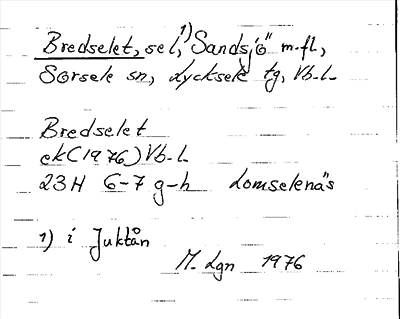 Bredselet, sel,1) Sandsjö m-fl,
Sorsele sn, Lycksele tg, Vb-L
Bredselet
ek (1976) Vb-L
23H 6-7 g-h Lomselenäs
1) i Juktån
M. Lgn 1976